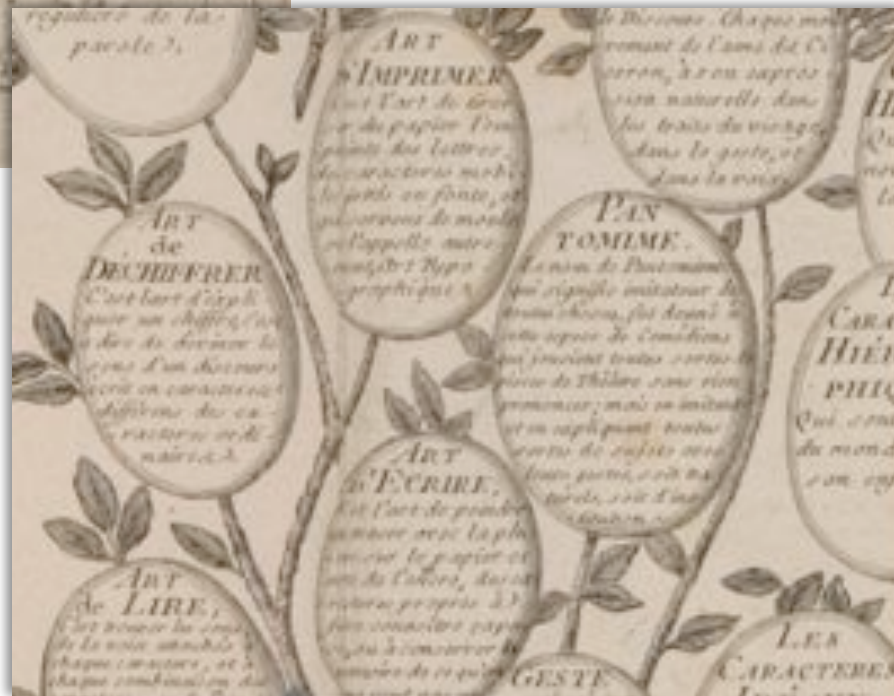 reguliere de la
parole ?.
ART
D'IMPRIMER
C'est l'art de tirer
sur du papier l'em
preinte des lettres,
de caracteres mobi
les jettés en fonte, et
qui servent de moule
on l'appelle autre
ment, Art Typo
graphique.
de Discours. Chaque mou
vement de l'ame dit Ci
ceron, à son expres
sion naturelle dans
les traits du visage,
dans le geste, et
dans la voix.
ART
de
DÉCHIFFRER
C'est l'art d'expli
quer un chiffre, c'est
à dire de deviner le
sens d'un discours
écrit en caracteres
différens des ca
racteres ordi
naires.
PAN
TOMIME.
Le nom de Pantomime
qui signifie imitateur de
toutes choses, fut donné à
cette espece de Comédiens
qui jouoient toutes sortes de
pieces de Théâtre sans rien
prononcer; mais en imitant
et en expliquant toutes
sortes de sujets avec
leurs gestes, soit na
turels, soit d'ins
titution.
CARA
HIÉ
PHI
Qui son
du mond
son
ART
D'ECRIRE,
Est l'art de peindre
avec la plu
me sur le papier et
de l'ancre, des ca
racteres propres à
faire connoître
ou à conserver la
mémoire de ce qu'on
ART
de LIRE,
C'est trouver les sons
de la voix attachés à
chaque caractere, et à
chaque combinaison de
GESTE
LES
CARACTERE